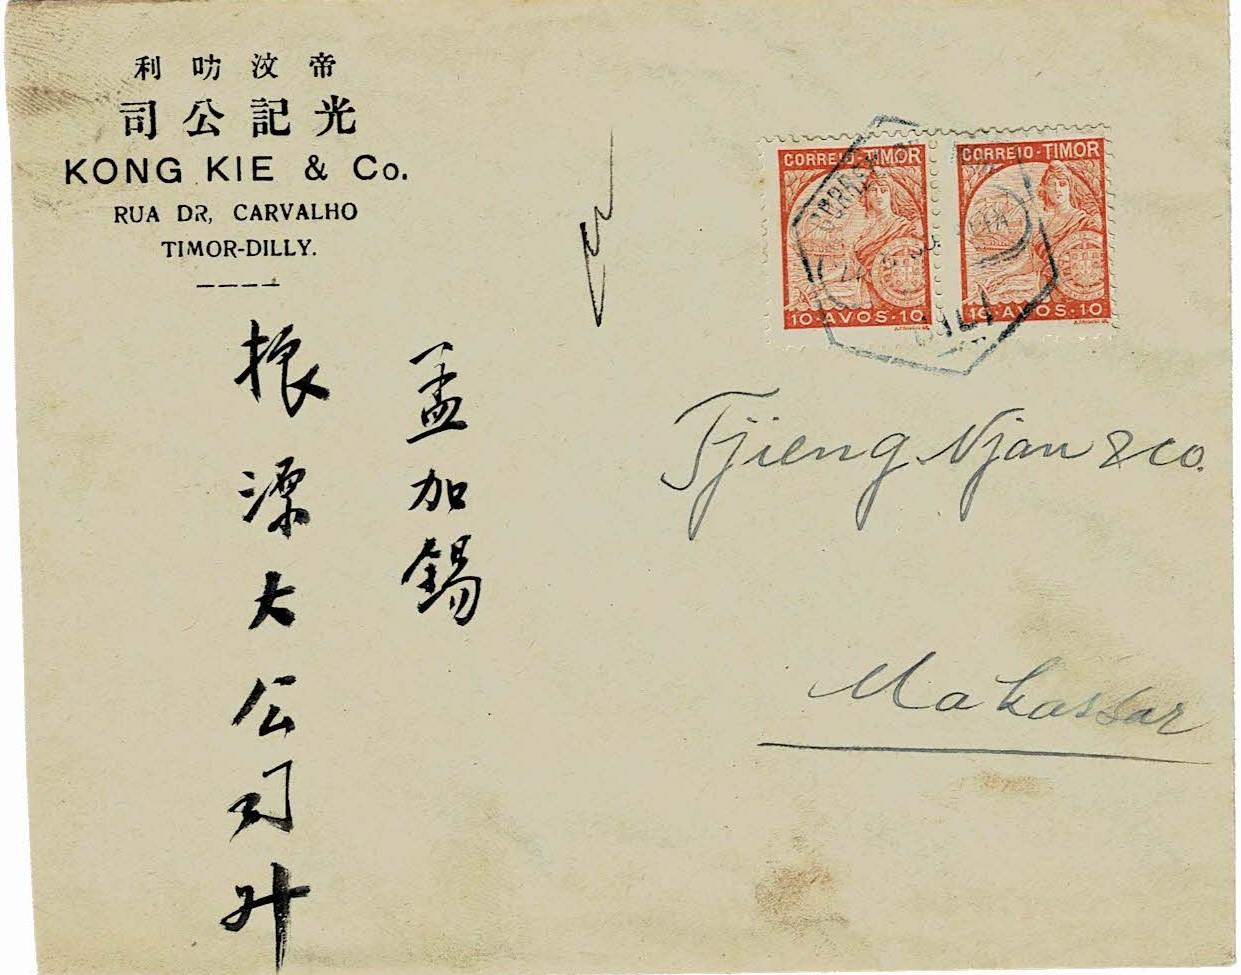 帝汶叻利
光記公司
KONG KIE & Co.
RUA DR, CARVALHO
TIMOR-DILLY.
孟加錫
振源大公司升
CORREIO-TIMOR
10·AVOS·10
CORREIO-TIMOR
10·AVOS·10
DILI
Tjieng Njan & Co.
Makassar